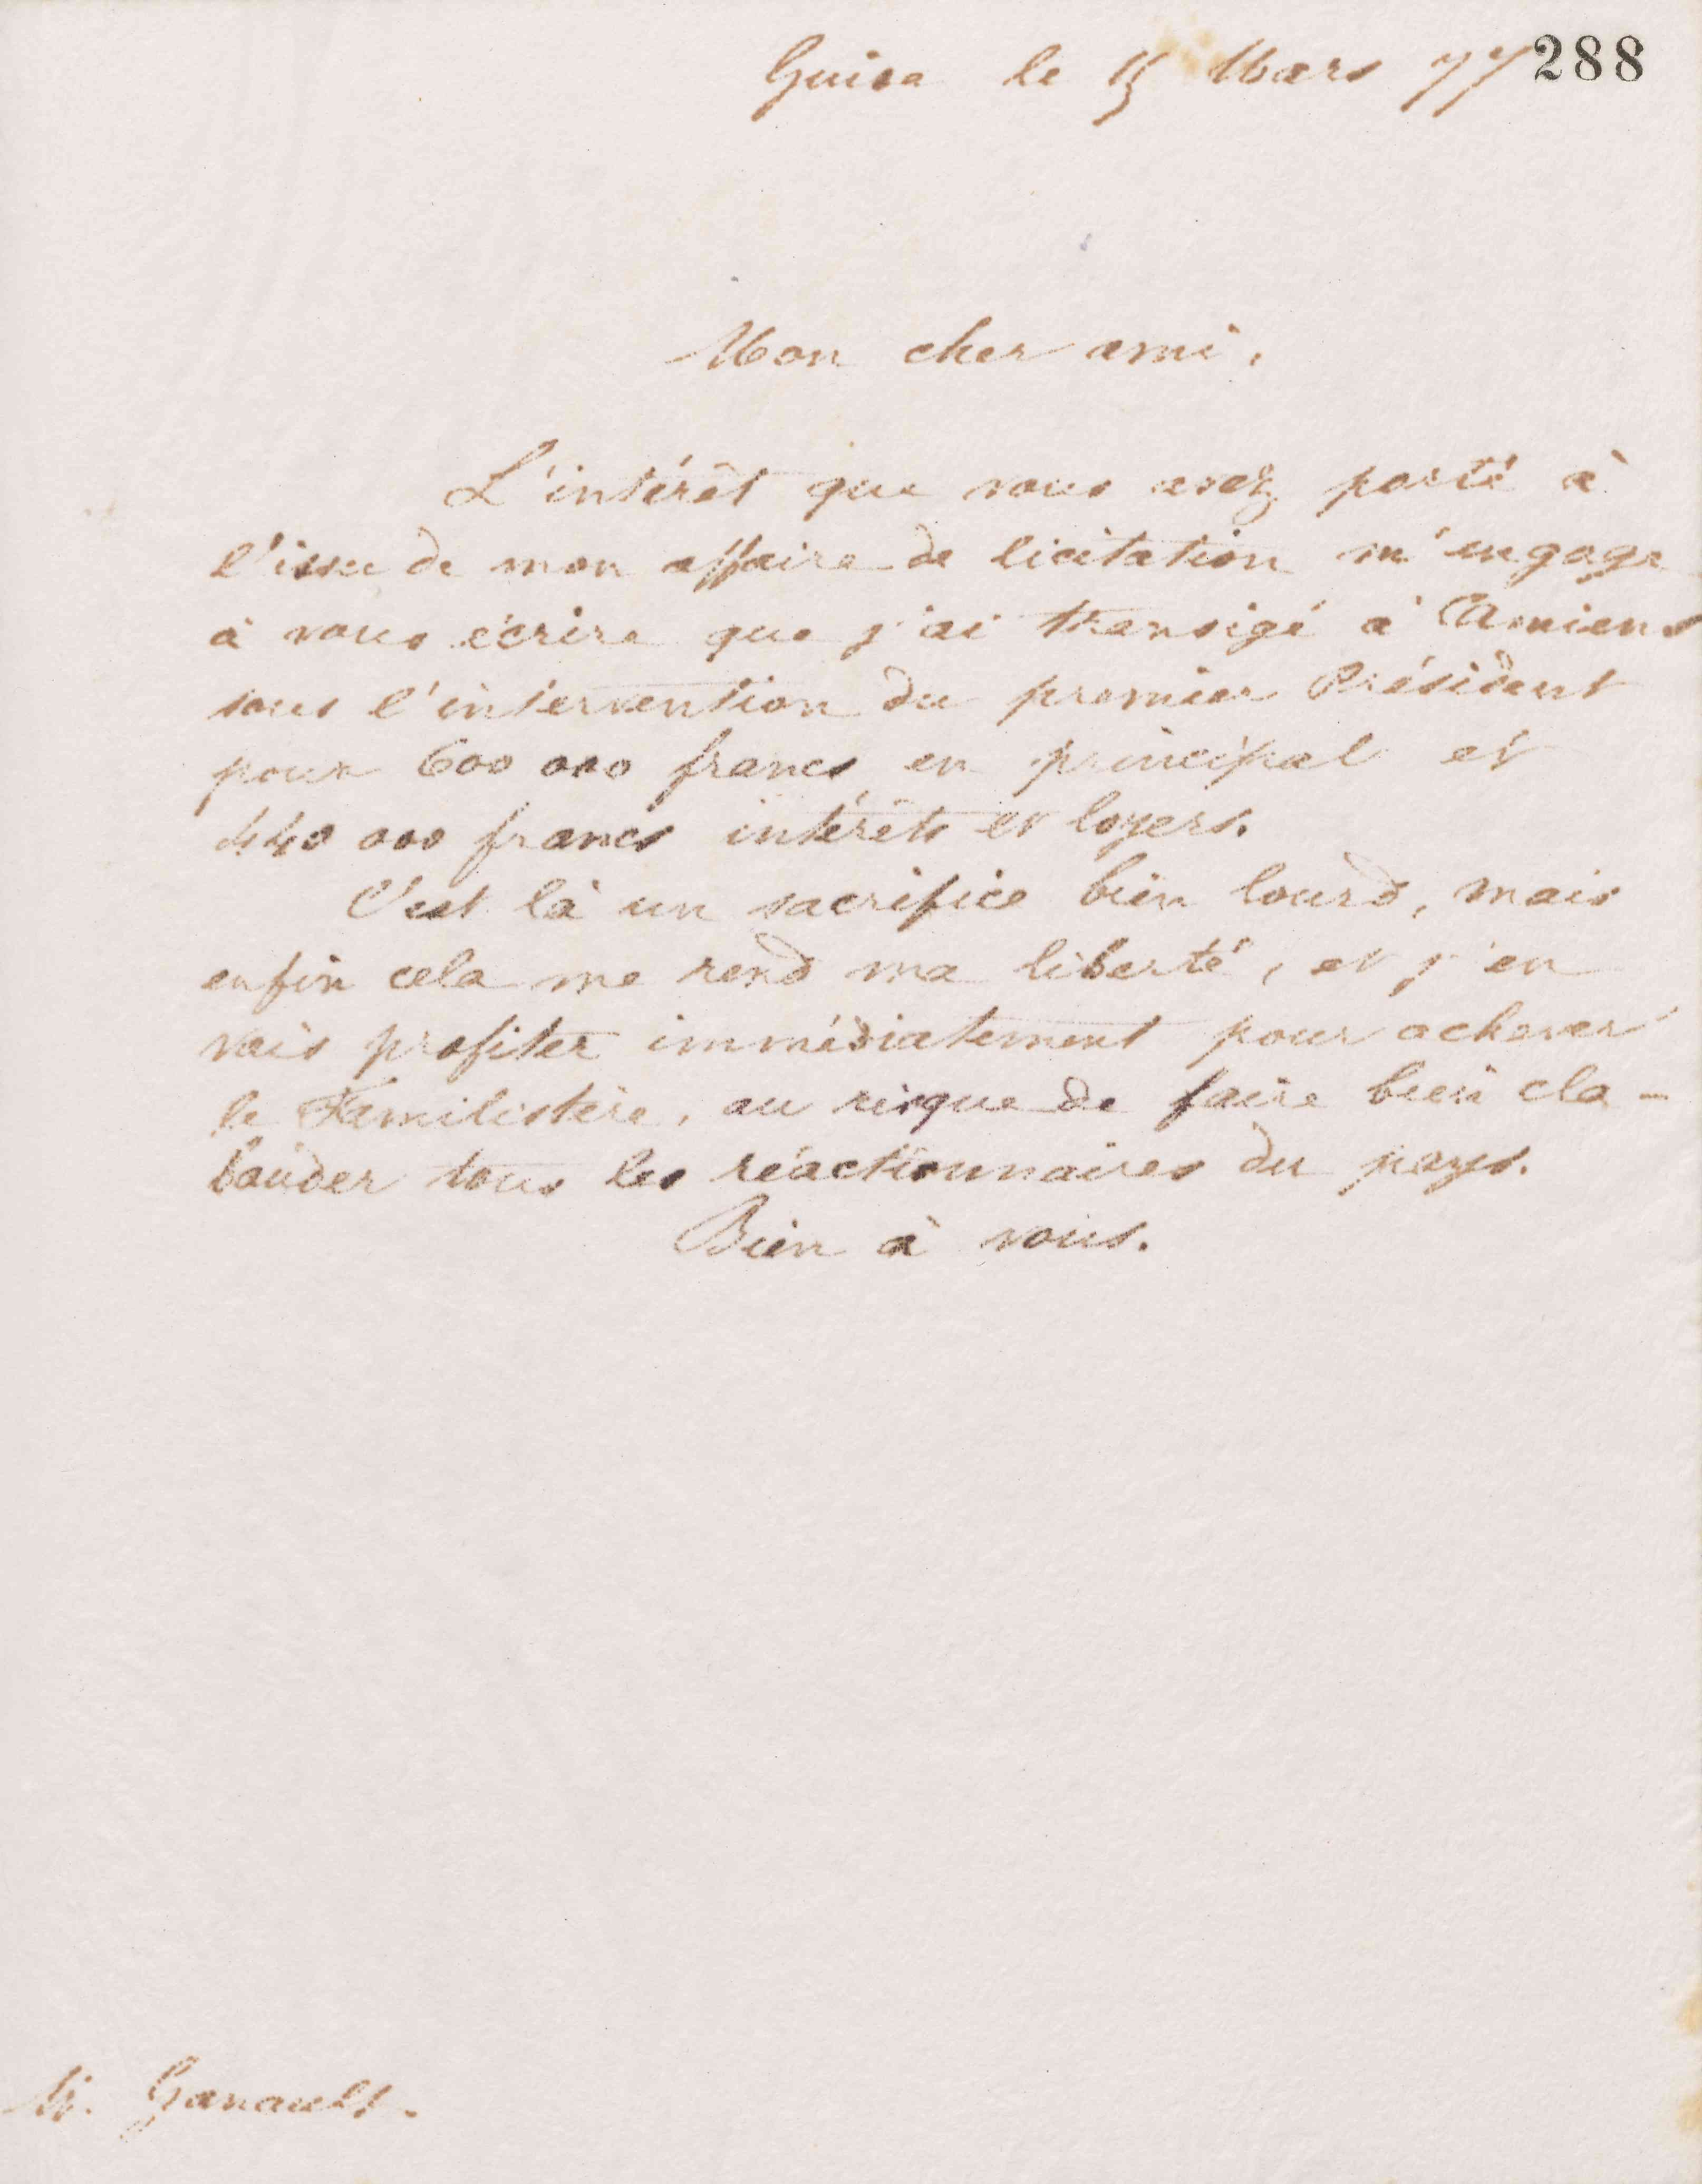 Guise le 15 Mars 77 288
Mon cher ami,
L'intérêt que vous avez porté à
l'issue de mon affaire de licitation m'engage
à vous écrire que j'ai transigé à Amiens
sous l'intervention du premier Président
pour 600 000 francs en principal et
440 000 francs intérêts et loyers.
C'est là un sacrifice bien lourd, mais
enfin cela me rend ma liberté, et j'en
vais profiter immédiatement pour achever
le Familistère, au risque de faire bien cla-
bauder tous les réactionnaires du pays.
Bien à vous.
M. Ganault.